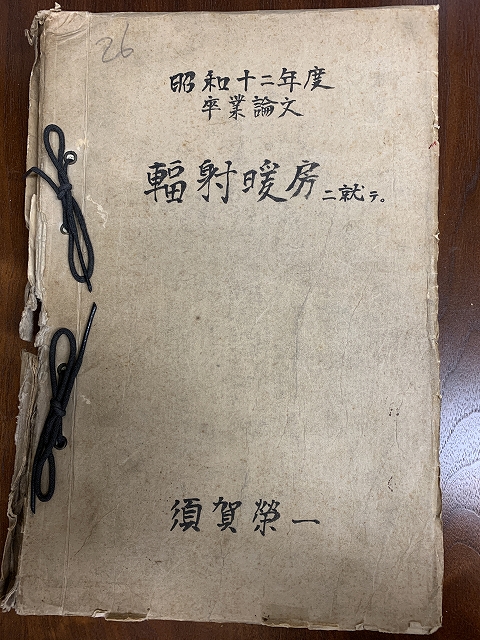 26
昭和十二年度
卒業論文
輻射暖房ニ就テ。
須賀榮一